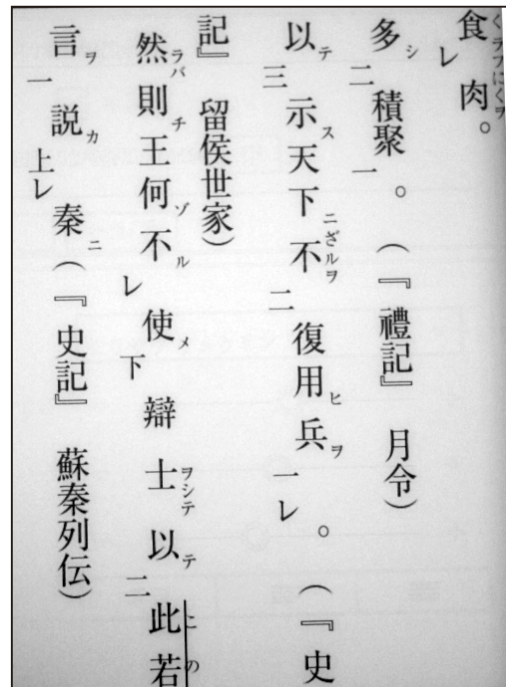 食くラフレ肉にくヲ。
多シ二積聚一。（『禮記』　月令）
以テ三示ス天下ニ不ざルヲ二復用ヒ兵ヲ一レ。（『史
記』　留侯世家）
然ラバ則チ王何ゾ不ルレ使メ下辯士ヲシテ以テ二此こ若の
言ヲ一説カ上レ秦ニ（『史記』　蘇秦列伝）